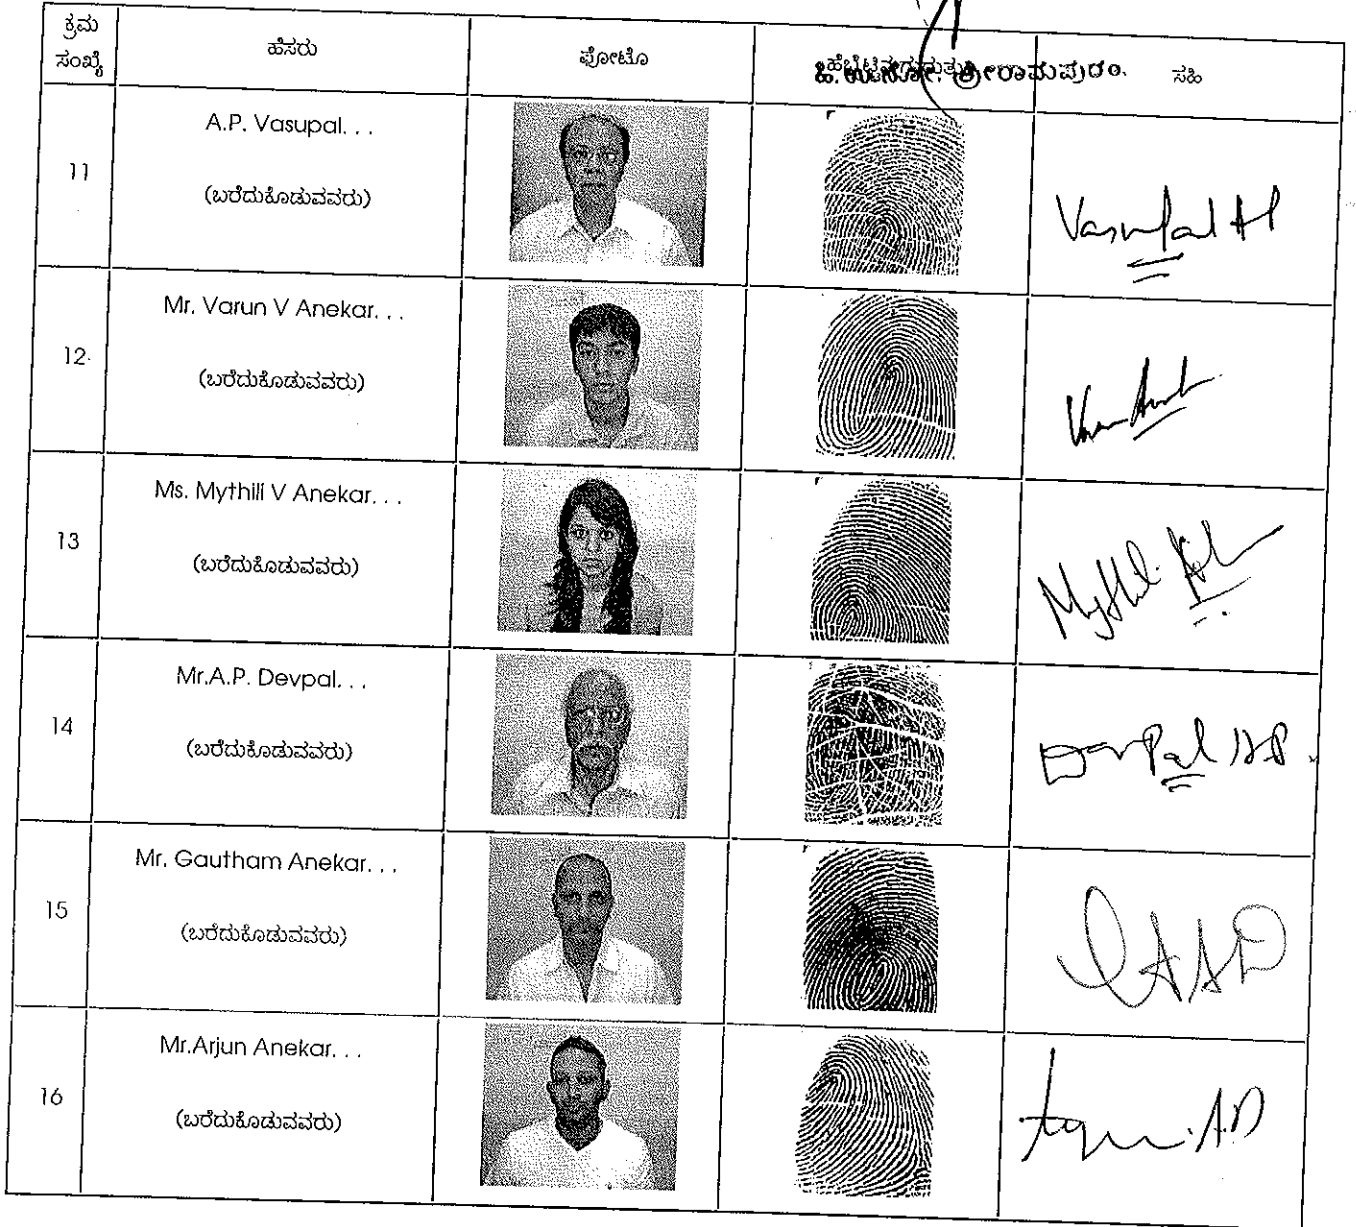 ಕ್ರಮ ಸಂಖ್ಯೆ ಹೆಸರು ಫೋಟೊ ಸಹಿ
ಶ್ರೀರಾಮಪುರಂ.
11 A.P. Vasupal. . .
(ಬರೆದುಕೊಡುವವರು)
Vasupal AP
12 Mr. Varun V Anekar. . .
(ಬರೆದುಕೊಡುವವರು)
13 Ms. Mythili V Anekar. . .
(ಬರೆದುಕೊಡುವವರು)
14 Mr.A.P. Devpal. . .
(ಬರೆದುಕೊಡುವವರು)
DevPal A.P.
15 Mr. Gautham Anekar. . .
(ಬರೆದುಕೊಡುವವರು)
16 Mr.Arjun Anekar. . .
(ಬರೆದುಕೊಡುವವರು)